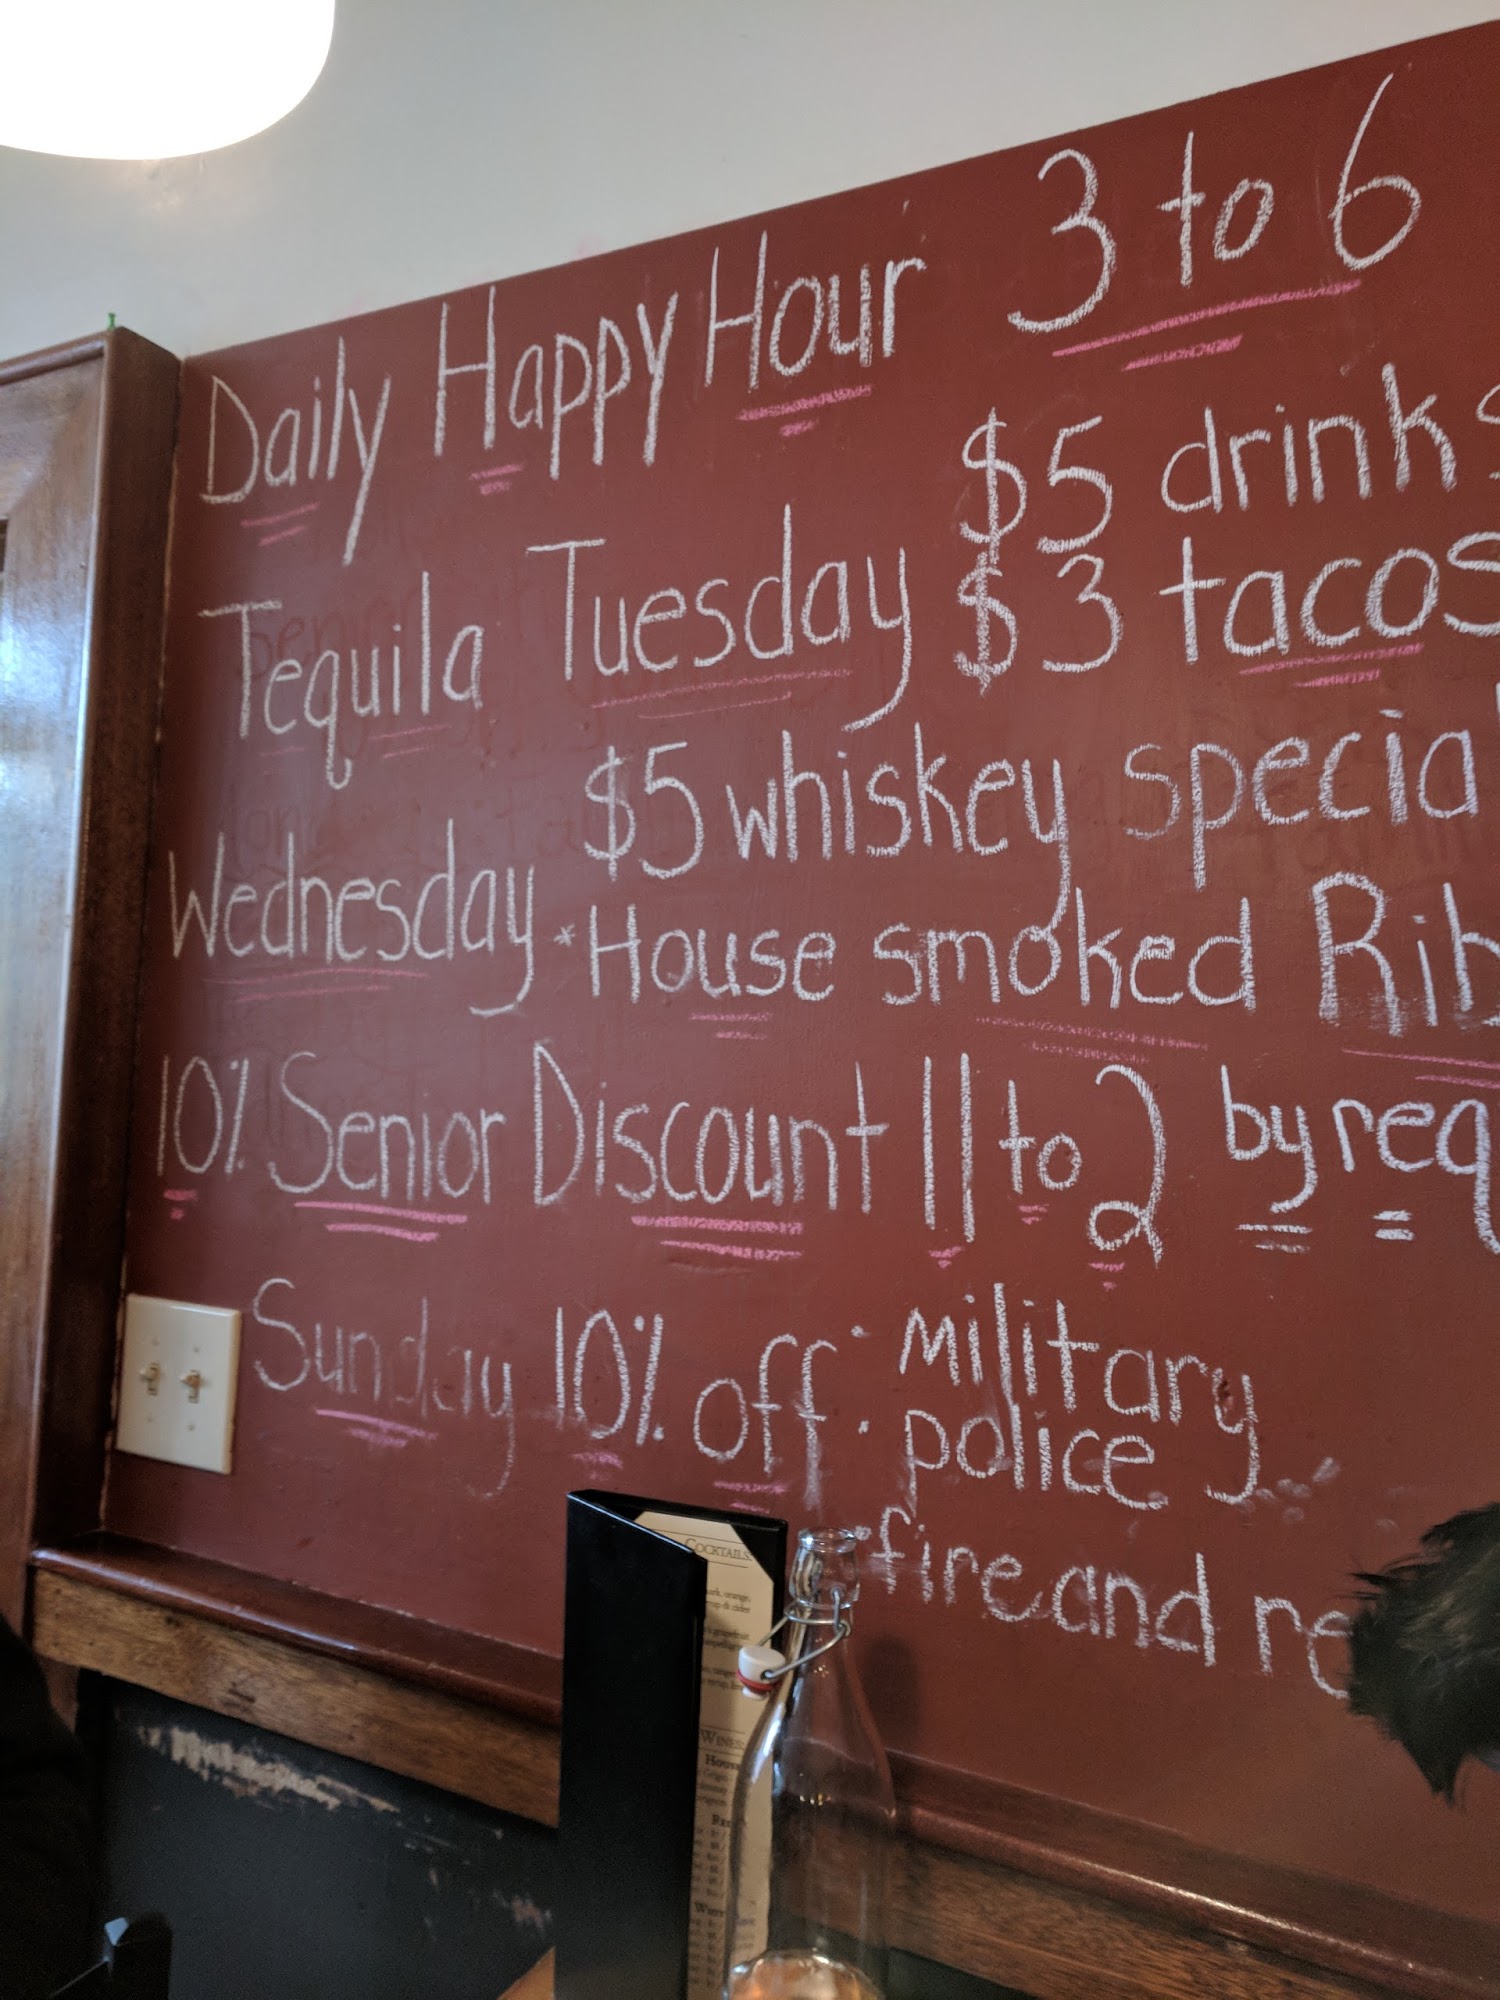 Daily Happy Hour 3 to 6
$5 drinks
Tequila Tuesday $3 tacos
$5 whiskey special
Wednesday *House smoked Rib
10% Senior Discount 11 to 2 by req
Sunday 10% off · military
· police
· fire and re
COCKTAILS
WINES